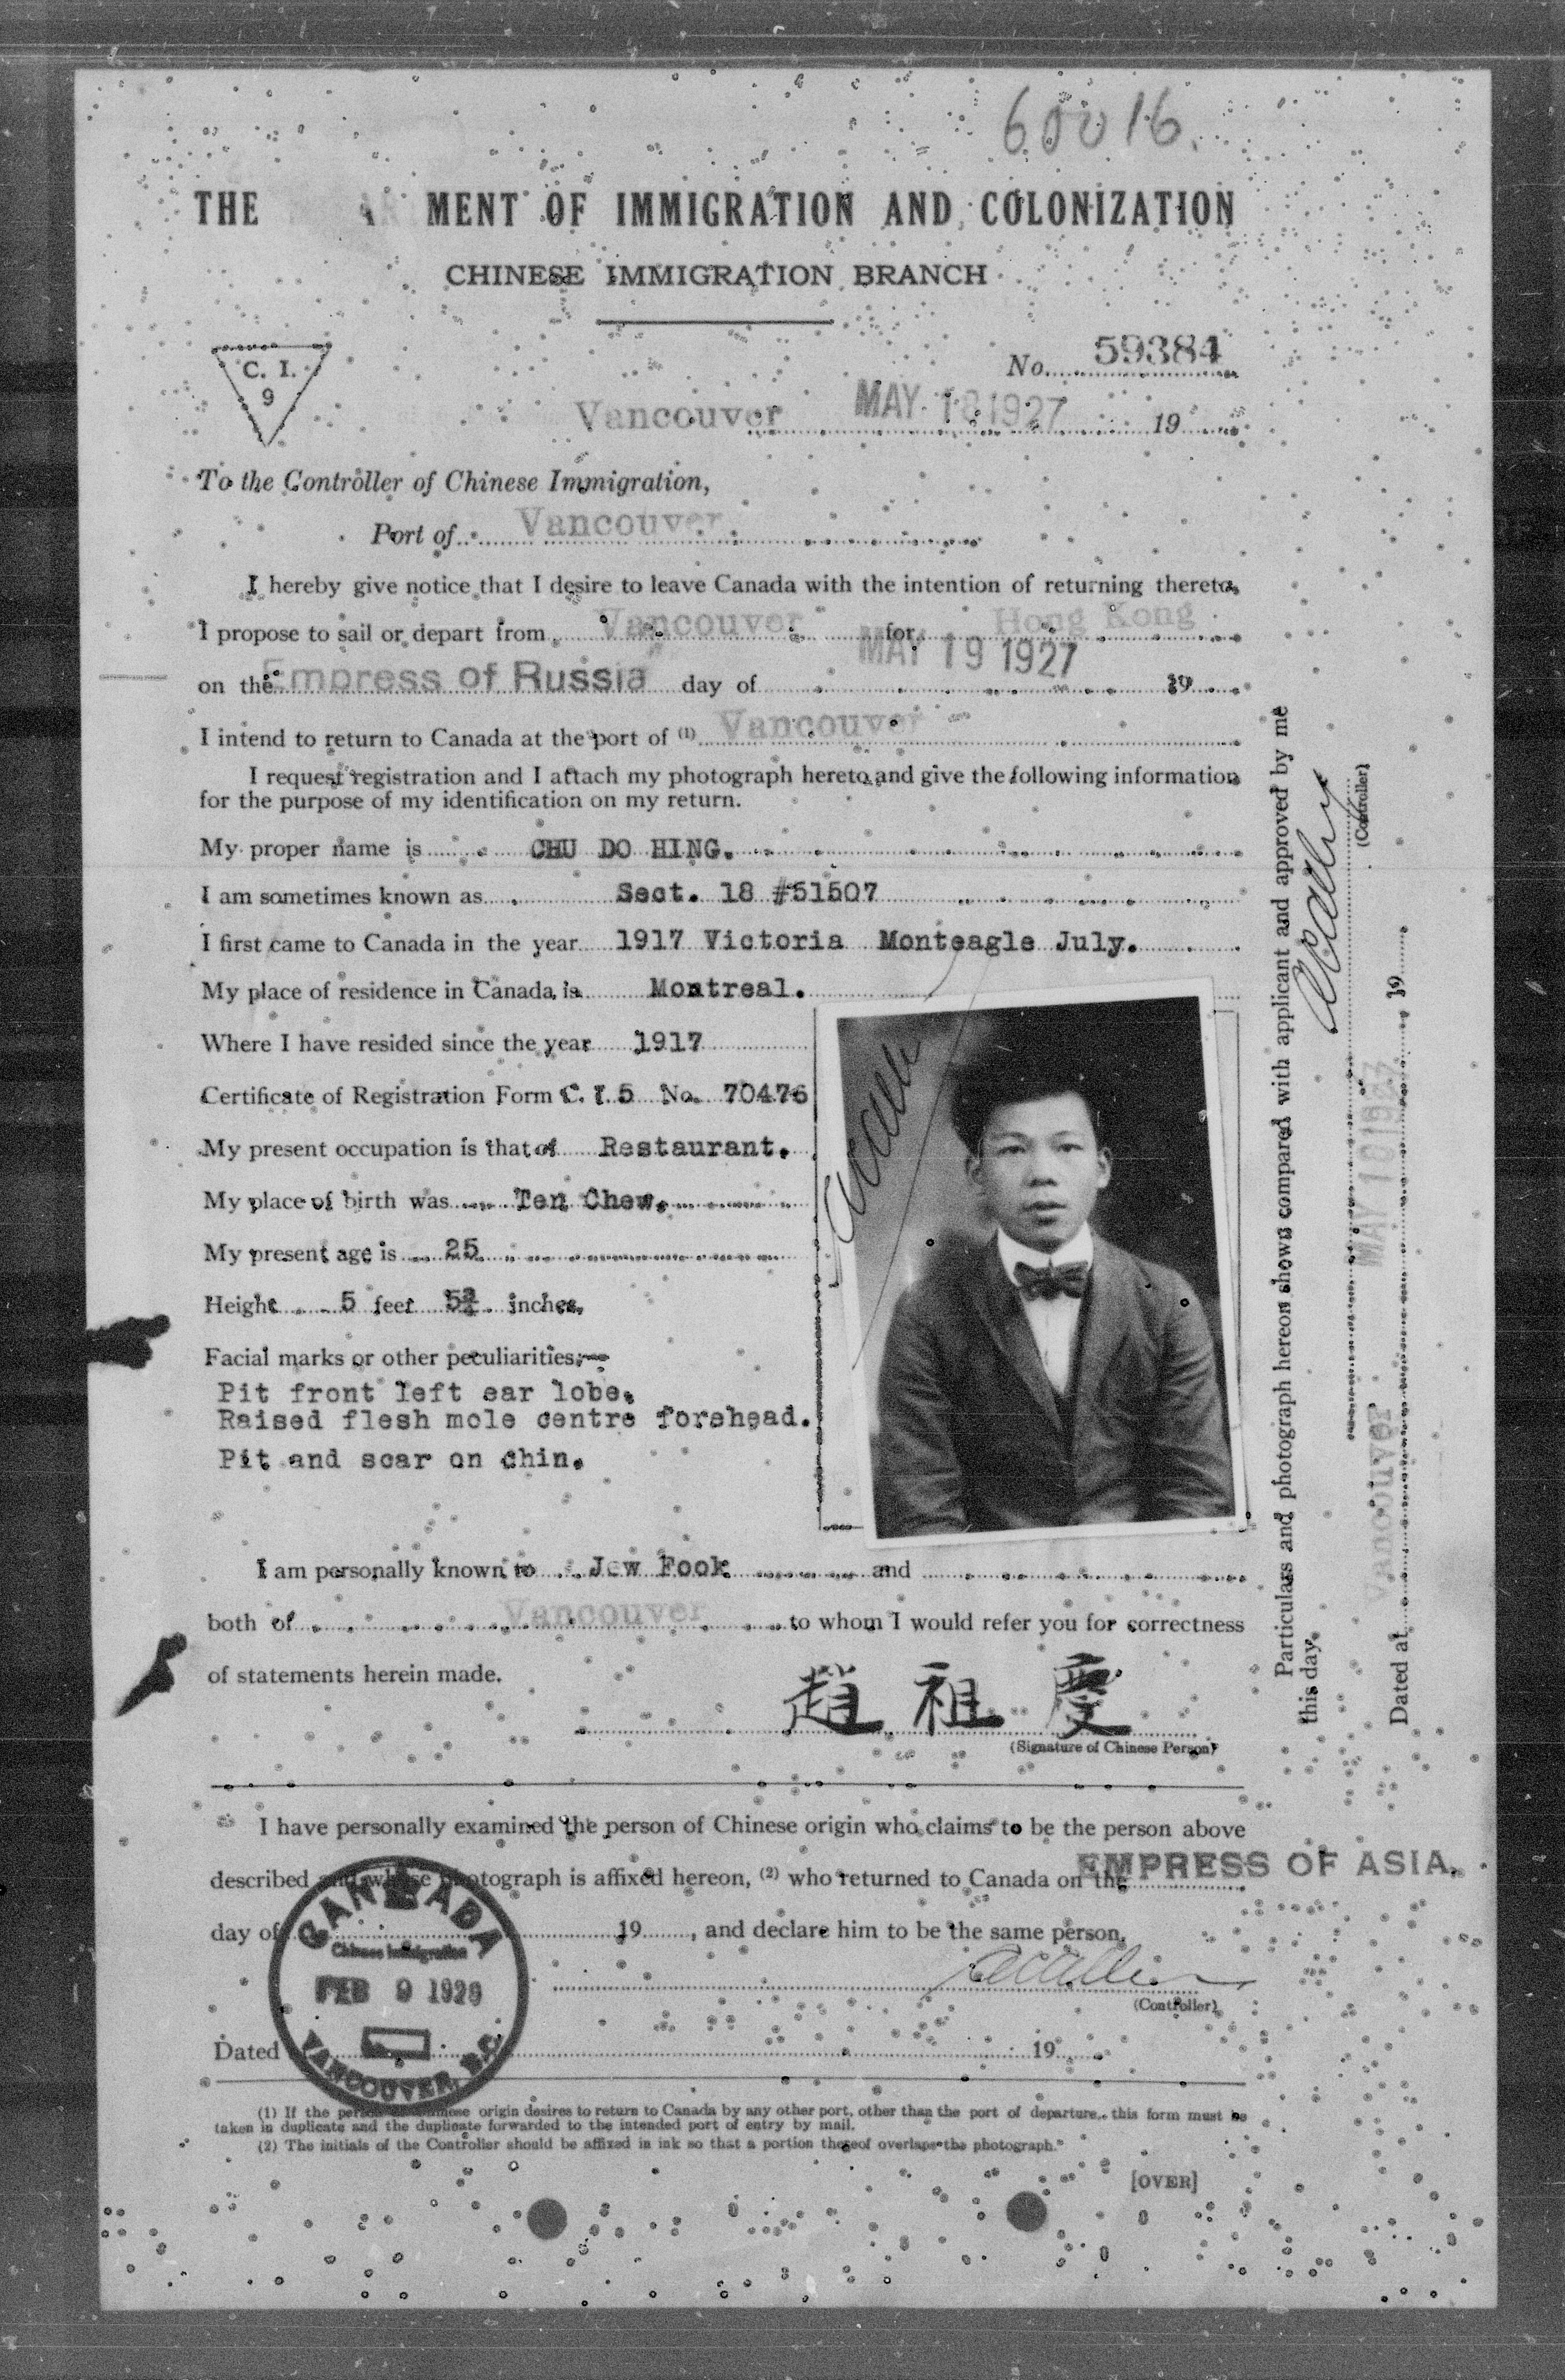 60016.
THE MENT OF IMMIGRATION AND COLONIZATION
CHINESE IMMIGRATION BRANCH
C. I.
9
No. 59384
Vancouver MAY 18 1927 19
To the Controller of Chinese Immigration,
Port of Vancouver
I hereby give notice that I desire to leave Canada with the intention of returning thereto.
I propose to sail or depart from Vancouver for Hong Kong
on the Empress of Russia day of MAY 19 1927 19
I intend to return to Canada at the port of (1) Vancouver
I request registration and I attach my photograph hereto and give the following information
for the purpose of my identification on my return.
My proper name is CHU DO HING.
I am sometimes known as Sect. 18 #51507
I first came to Canada in the year 1917 Victoria Monteagle July.
My place of residence in Canada is Montreal.
Where I have resided since the year 1917
Certificate of Registration Form C. I. 5 No. 70476
My present occupation is that of Restaurant.
My place of birth was Ten Chew.
My present age is 25
Height 5 feet 5¾ inches.
Facial marks or other peculiarities:—
Pit front left ear lobe.
Raised flesh mole centre forehead.
Pit and scar on chin.
I am personally known to Jew Fook and
both of Vancouver to whom I would refer you for correctness
of statements herein made.
趙祖慶
(Signature of Chinese Person)
Particulars and photograph hereon shown compared with applicant and approved by me
this day.
(Controller)
Dated at Vancouver MAY 18 1927 19
I have personally examined the person of Chinese origin who claims to be the person above
described and whose photograph is affixed hereon, (2) who returned to Canada on the EMPRESS OF ASIA.
day of 19, and declare him to be the same person.
(Controller)
CANADA
Chinese Immigration
FEB 9 1929
VANCOUVER, B.C.
Dated 19
(1) If the person of Chinese origin desires to return to Canada by any other port, other than the port of departure, this form must be
taken in duplicate and the duplicate forwarded to the intended port of entry by mail.
(2) The initials of the Controller should be affixed in ink so that a portion thereof overlaps the photograph.
[OVER]